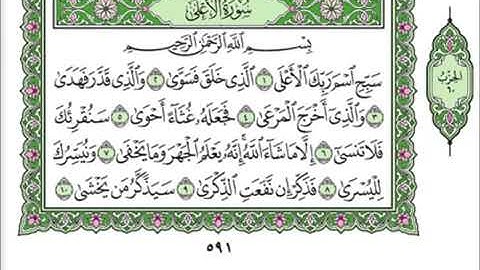 سُورَةُ الأَعْلَى
بِسْمِ اللَّهِ الرَّحْمَٰنِ الرَّحِيمِ
سَبِّحِ اسْمَ رَبِّكَ الْأَعْلَى ١ الَّذِي خَلَقَ فَسَوَّىٰ ٢ وَالَّذِي قَدَّرَ فَهَدَىٰ
٣ وَالَّذِي أَخْرَجَ الْمَرْعَىٰ ٤ فَجَعَلَهُ غُثَاءً أَحْوَىٰ ٥ سَنُقْرِئُكَ
فَلَا تَنسَىٰ ٦ إِلَّا مَا شَاءَ اللَّهُ إِنَّهُ يَعْلَمُ الْجَهْرَ وَمَا يَخْفَىٰ ٧ وَنُيَسِّرُكَ
لِلْيُسْرَىٰ ٨ فَذَكِّرْ إِن نَّفَعَتِ الذِّكْرَىٰ ٩ سَيَذَّكَّرُ مَن يَخْشَىٰ ١٠
الحزب
٦٠
٥٩١